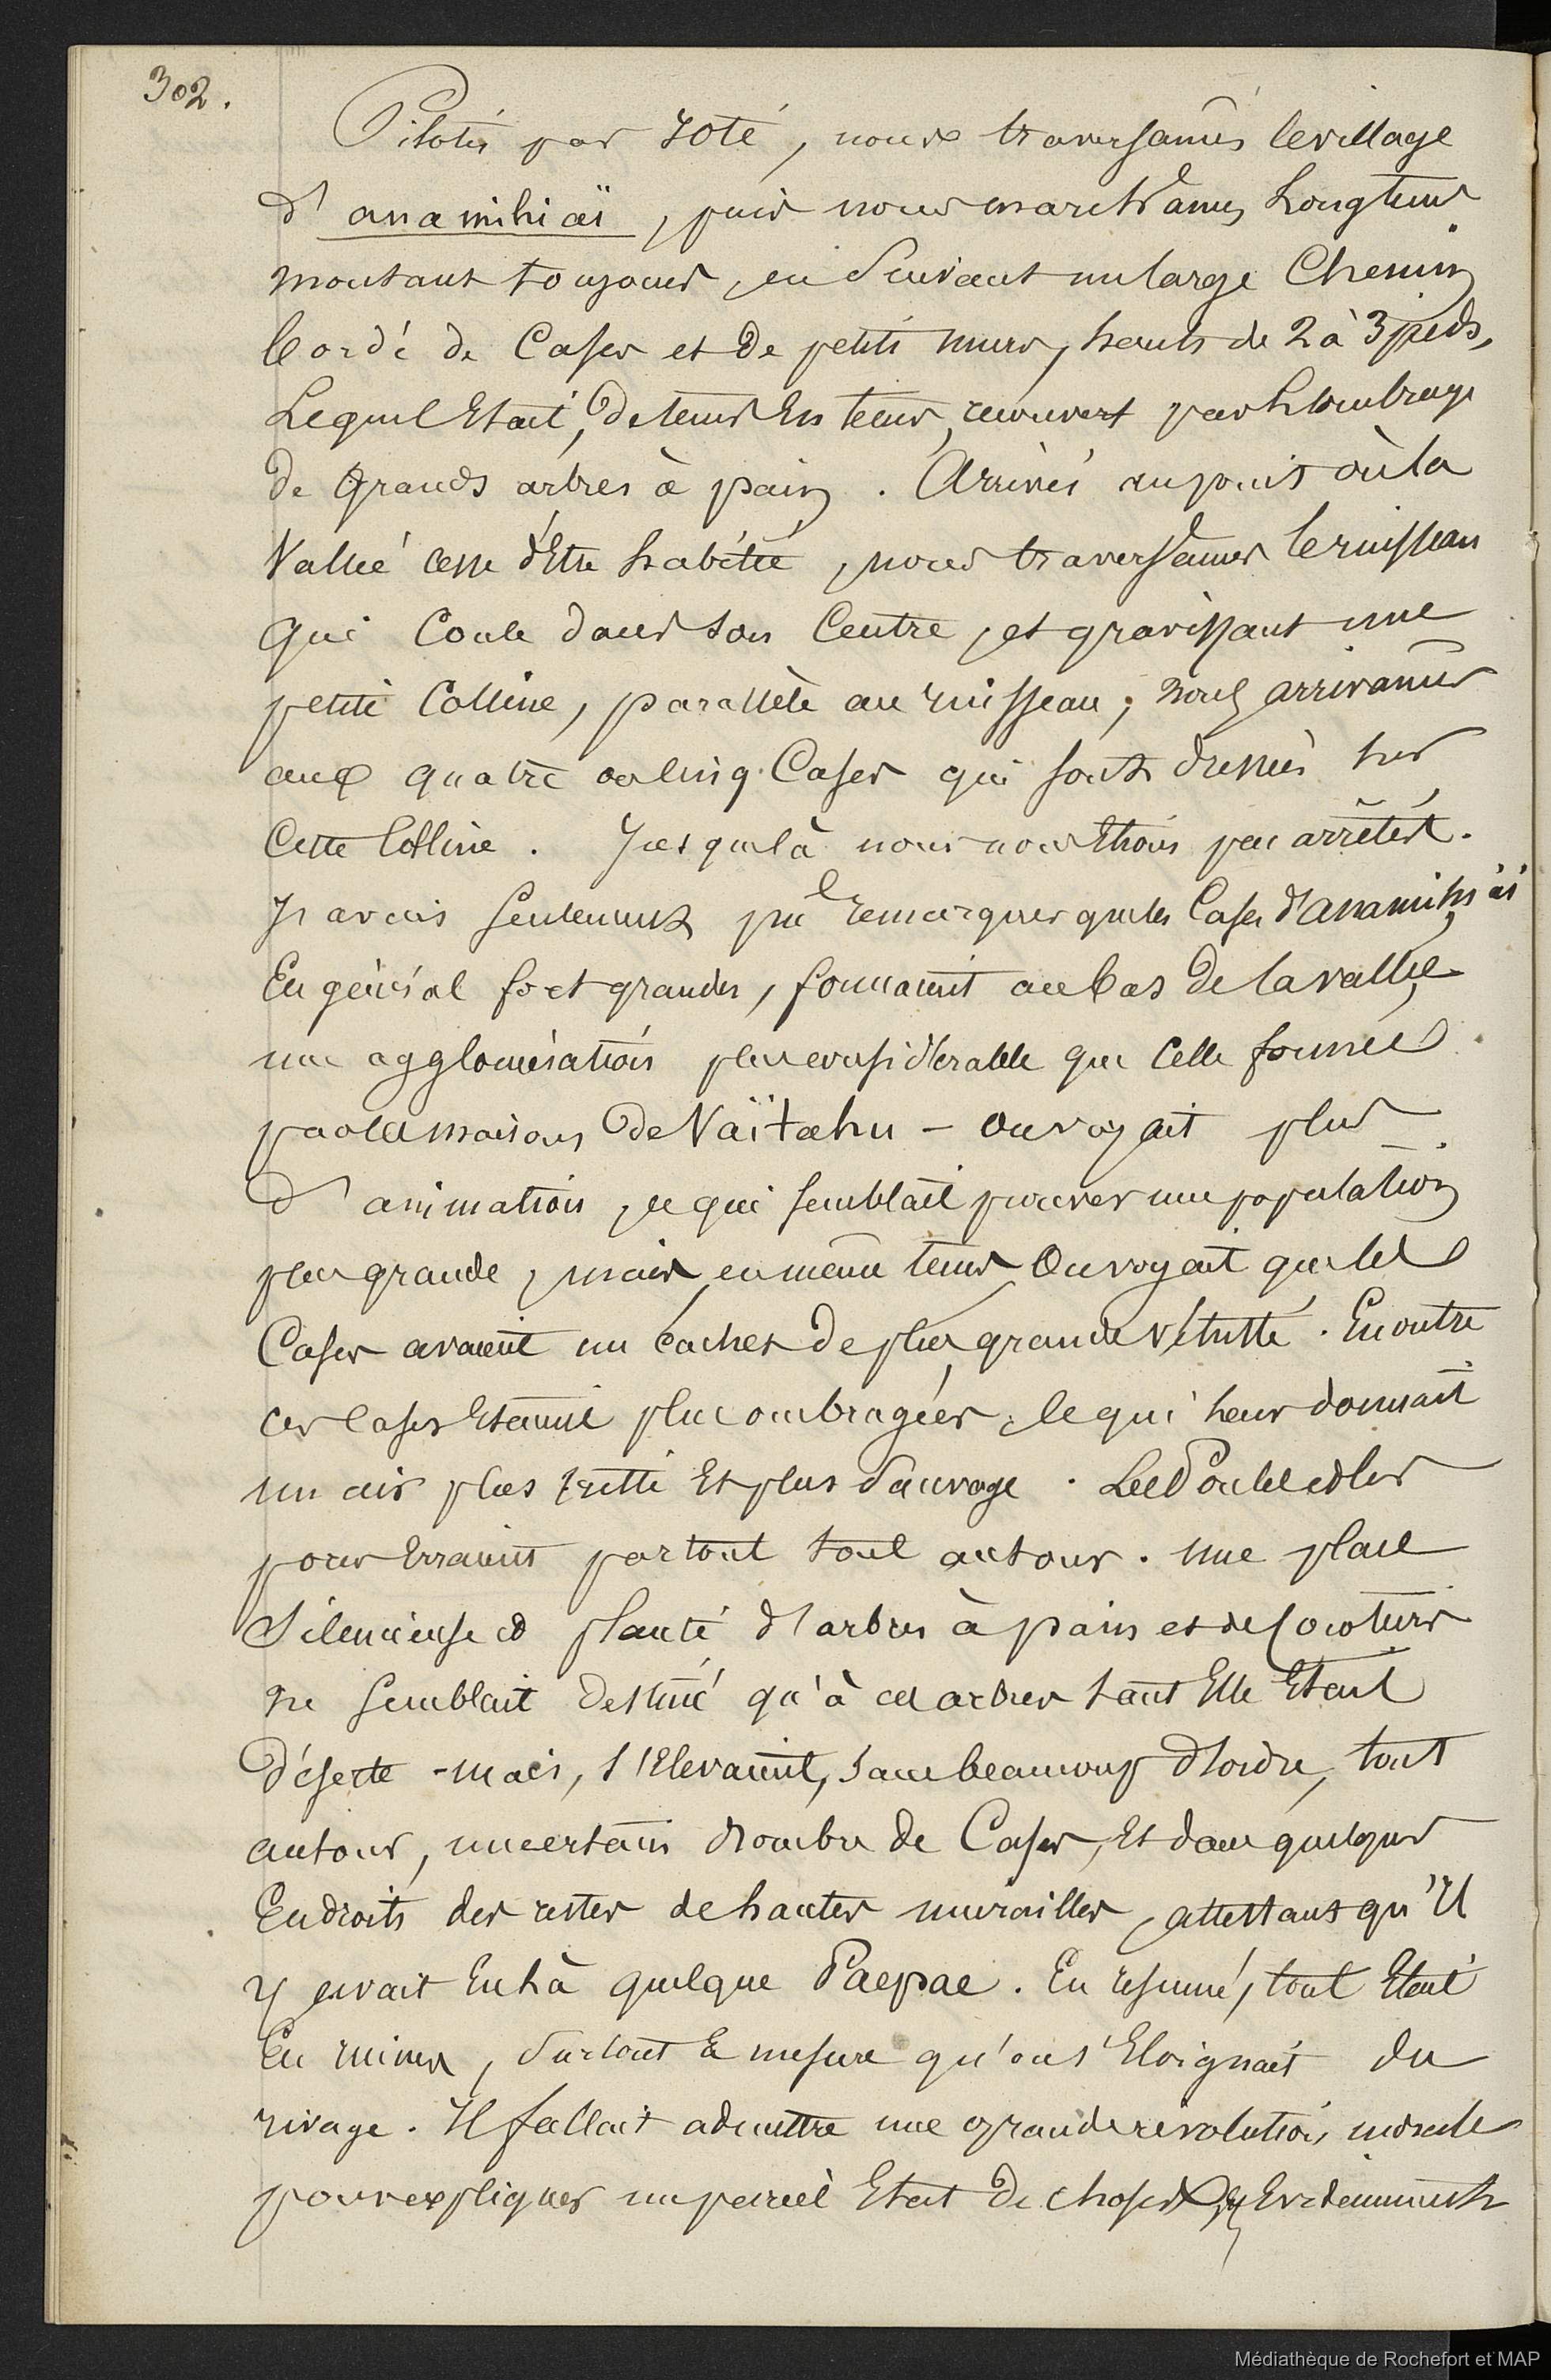 302.
Pilotés par Yoté, nous traversâmes le village
d'anamihiaï, puis nous marchâmes Longtems
montant toujours, en Suivant un large Chemin
bordé de Cases et de petits murs, hauts de 2 à 3 pieds,
Lequel Etait, de tems En tems, recouvert par L'ombrage
de Grands arbres à pain. Arrivés au point où la
Vallée cesse d'Etre habitée, nous traversâmes le ruisseau
qui Coule dans son Centre, et gravissant une
petite Colline, parallèle au ruisseau, nous arrivâmes
aux quatre ou Cinq Cases qui sont dressées sur
Cette Colline. Jusques là nous nous Etions peu arrêtés.
Je avais Seulement pu remarquer que les Cases d'Anamihiaï
En général fort grandes, formaient au bas de la vallée
une agglomération plus considérable que Celle formée
par les maisons de Vaïtahu - On voyait plus
d'animation, ce qui semblait prouver une population
plus grande, mais en même tems On voyait que les
Cases avaient un cachet de plus grande Vétusté. En outre
ces Cases Etaient plus ombragées, ce qui leur donnait
un air plus triste Et plus Sauvage. Les Poules et les
porcs Erraient partout tout autour. Une place
Silencieuse et planté d'arbres à pain et de Cocotiers
ne semblait destiné qu'à ces arbres tant Elle Etait
déserte - mais, s'Elevaient, sans beaucoup d'ordre, tout
autour, un certain Nombre de Cases, Et dans quelques
Endroits des restes de hautes murailles, attestant qu'Il
y avait Eu là quelque Paepae. En resumé, tout Etait
En ruines, Surtout à mesure qu'on s'Eloignait du
rivage. Il fallait admettre une grande révolution morale
pour expliquer un pareil Etat de choses. Evidemment
Médiathèque de Rochefort et MAP